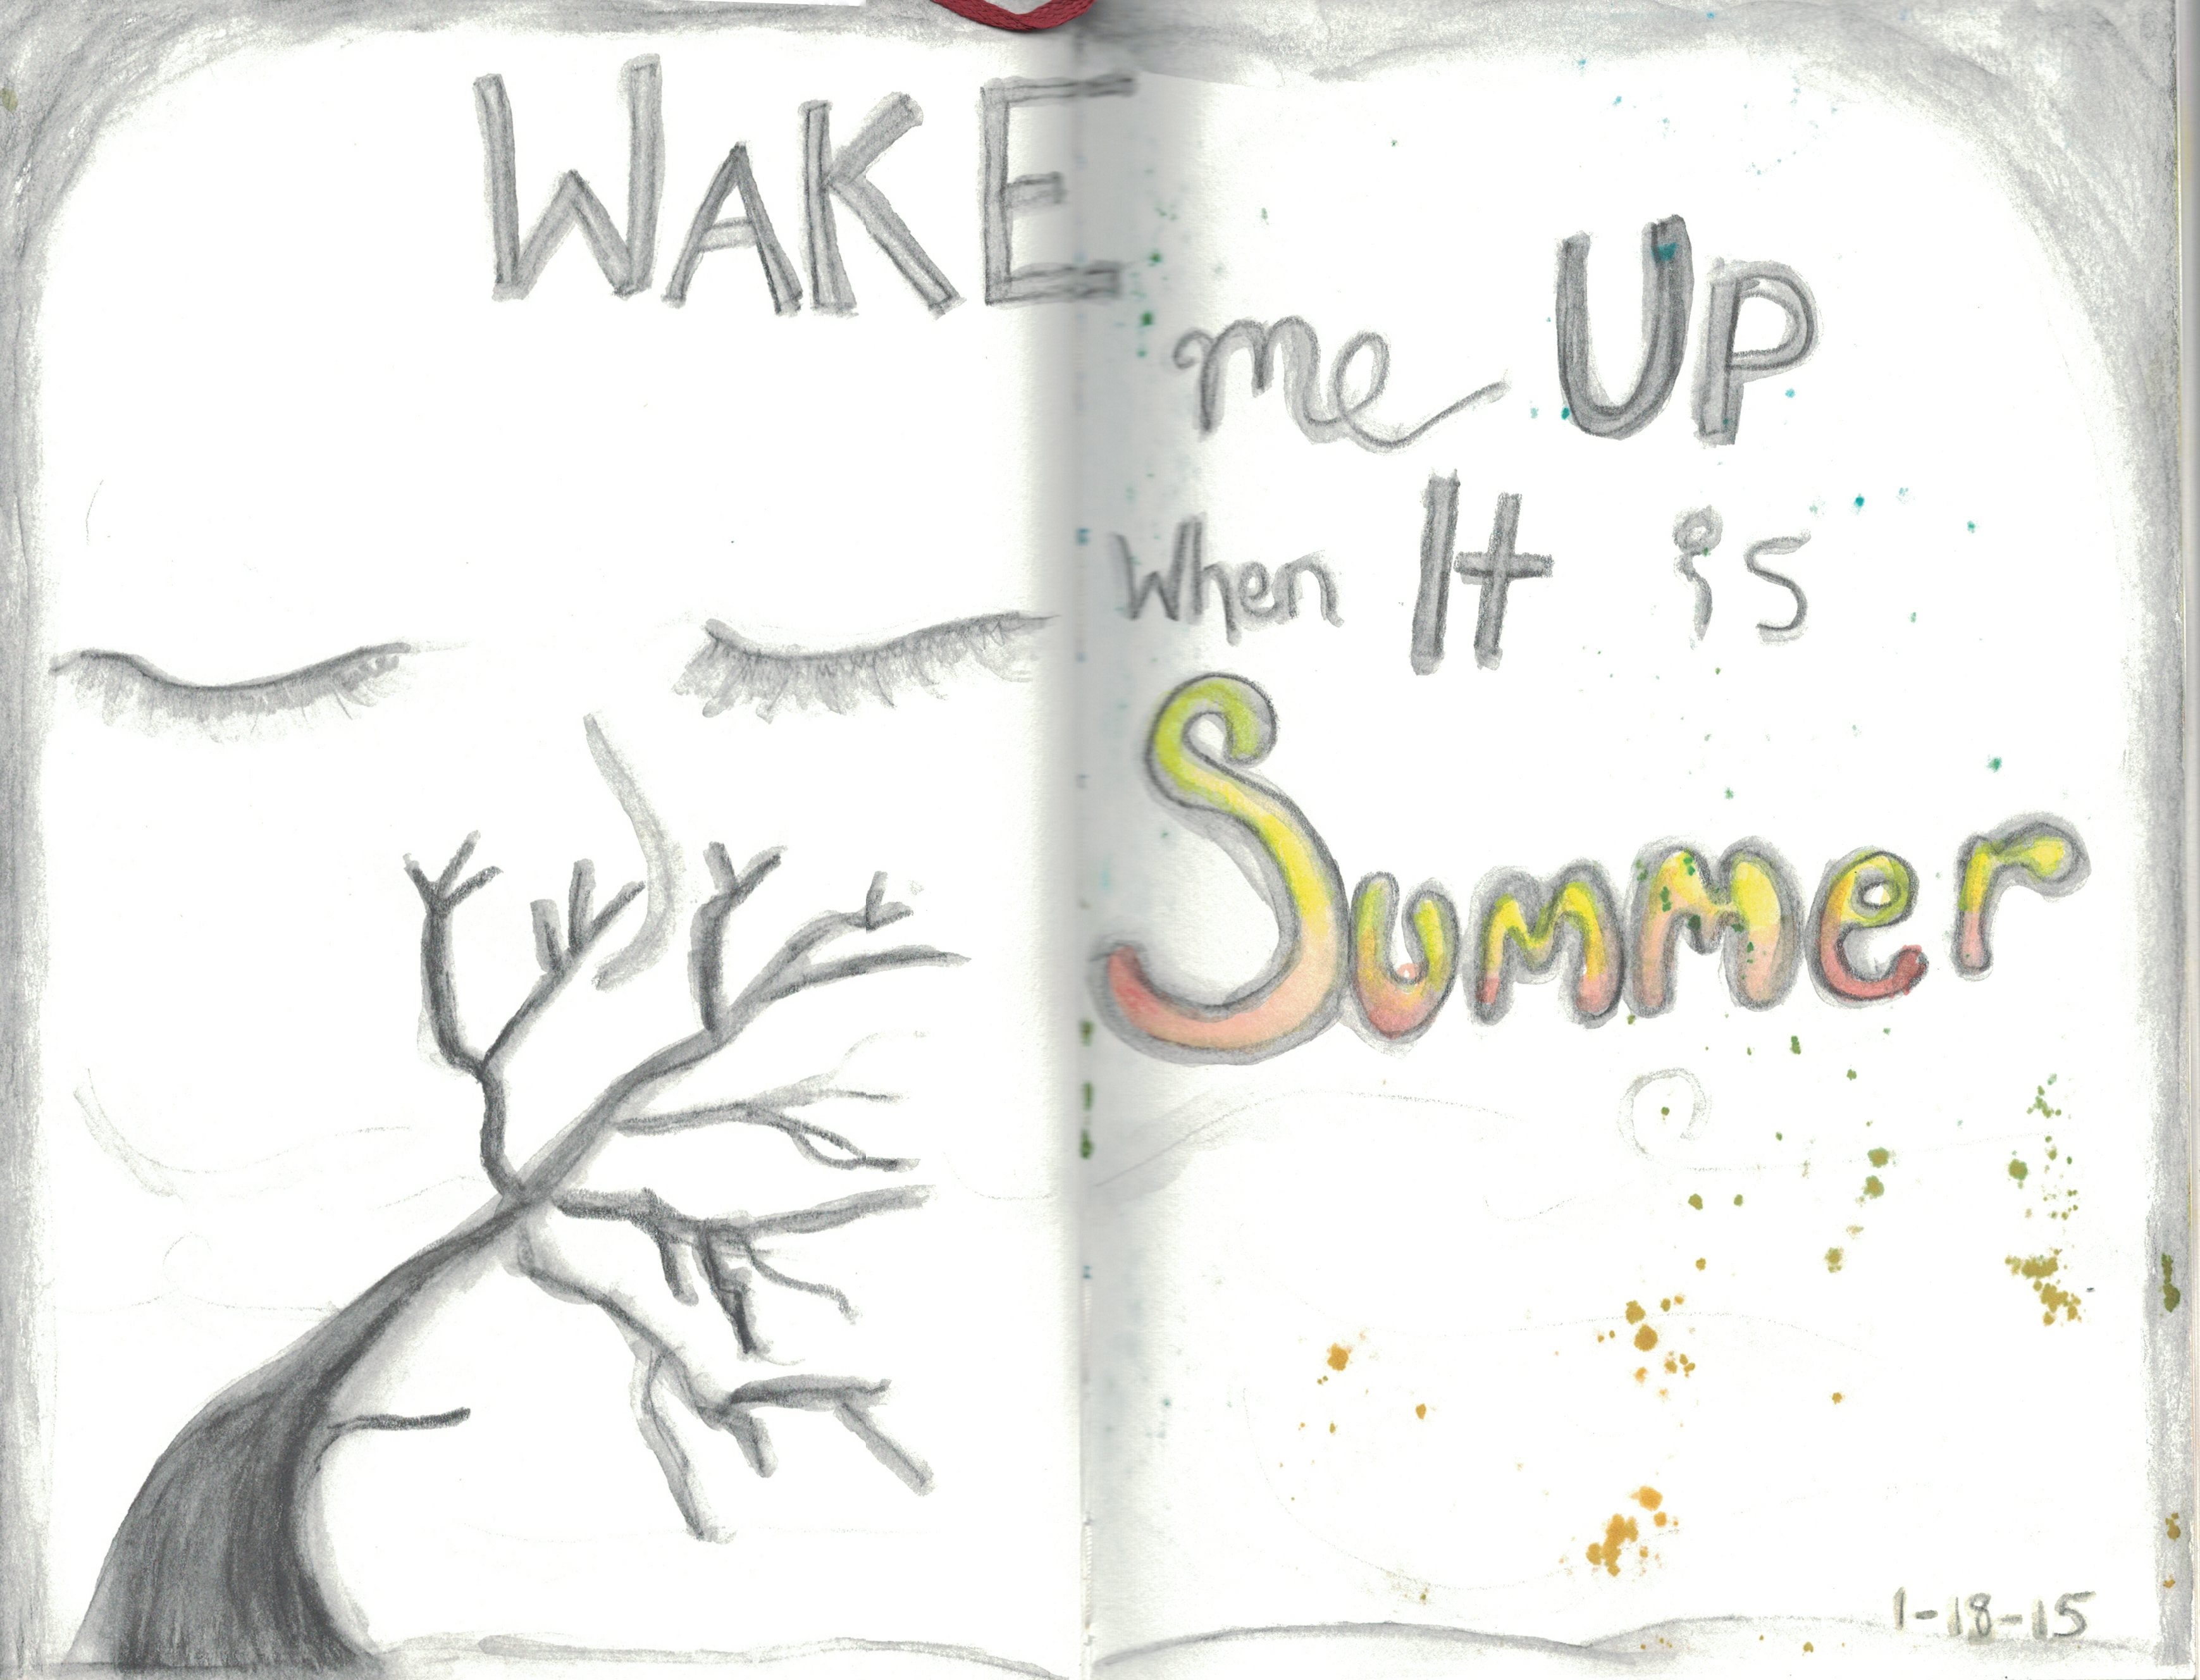 WAKE
me UP
When It is
Summer
1-18-15